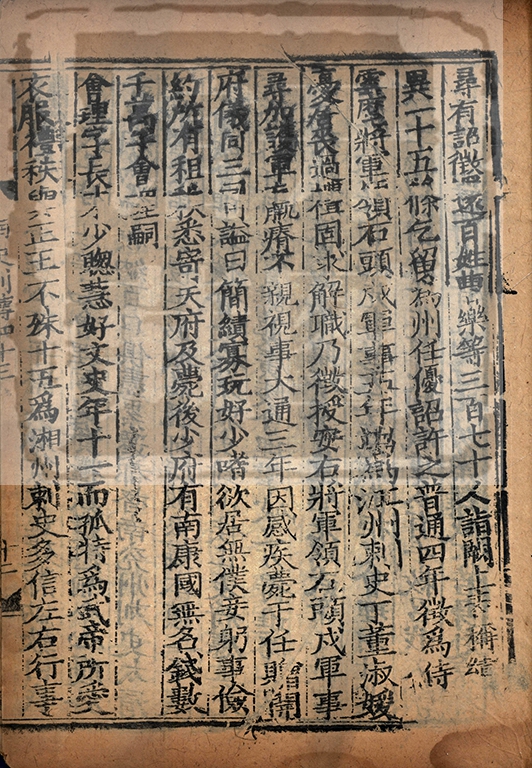 尋有詔徵還百姓曹樂等三百七十人詣闕上表稱績
異一十五條乞留爲州任優詔許之普通四年徵爲侍
雲麾將軍領石頭戍軍事五年江州刺史丁董淑媛
憂居喪過禮固求解職乃徵授安右將軍領石頭戍軍事
尋加護軍羸瘠不親視事大通三年因感疾薨于任贈開
府儀同三司諡曰簡績寡玩好少嗜欲居無僕妾躬事儉
約所有租秩悉寄天府及薨後少府有南康國無名錢數
千萬子會理嗣
會理字長才少聰慧好文史年十一而孤特爲武帝所愛
衣服禮秩與正王不殊十五爲湘州刺史多信左右行事